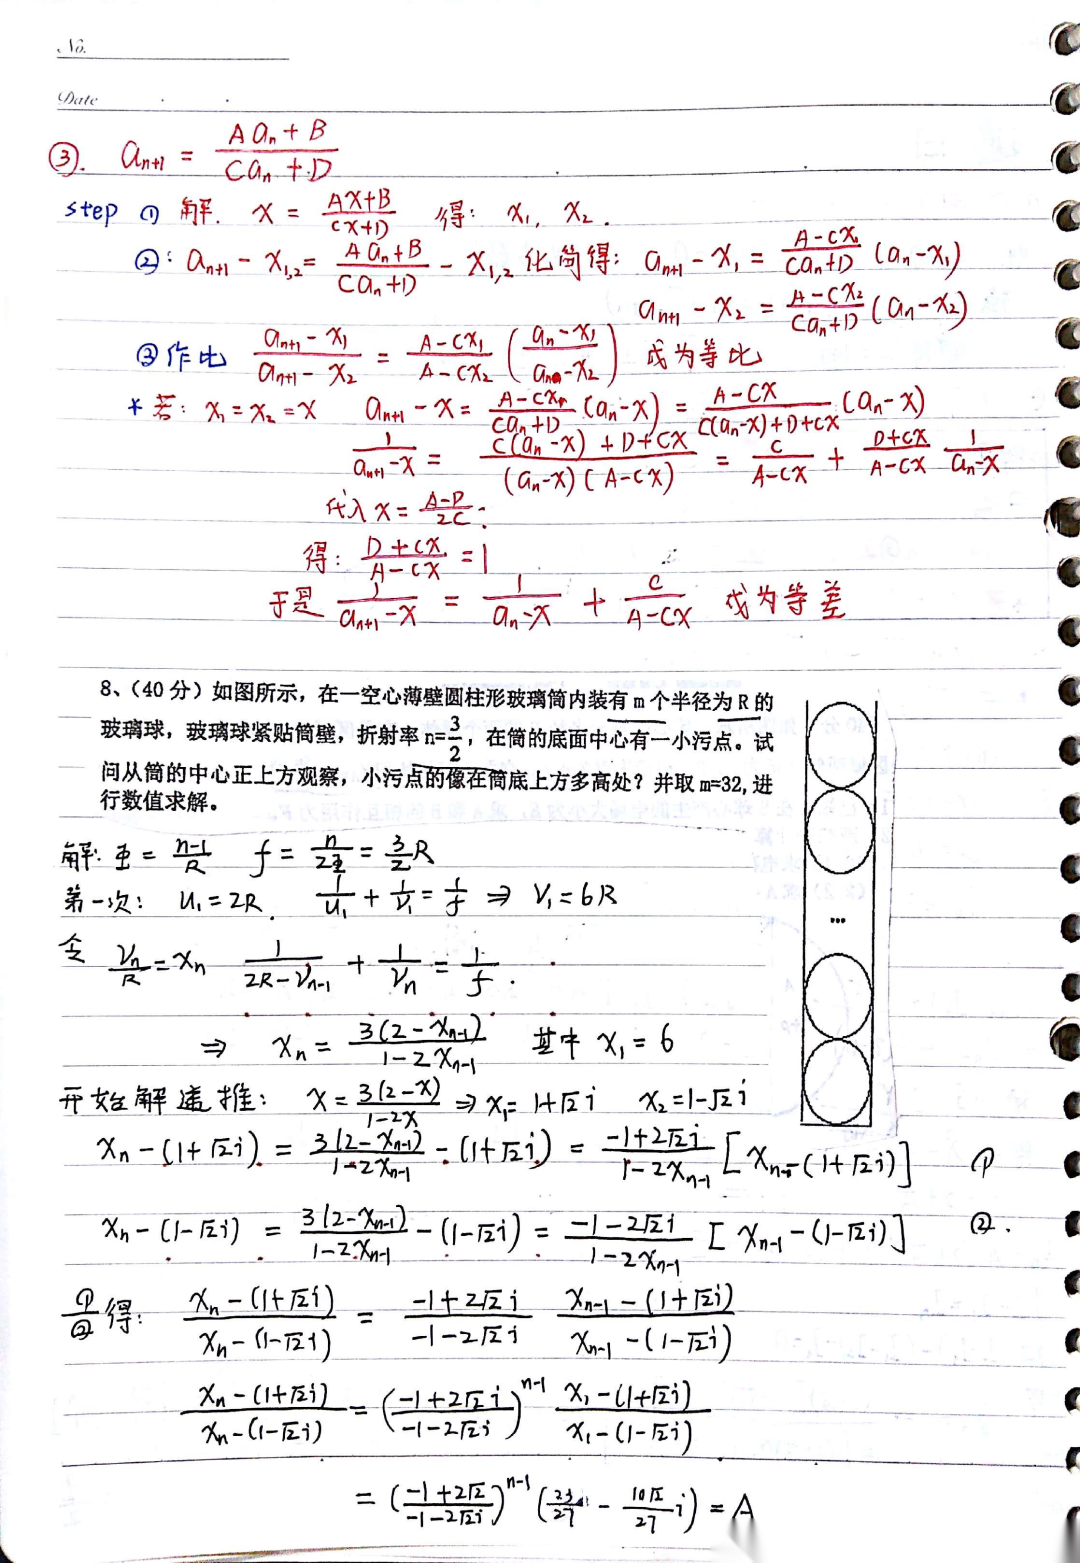 No.
Date
③. aₙ₊₁ = (Aaₙ+B)/(Caₙ+D)
step ① 解. x = (Ax+B)/(Cx+D) 得: x₁, x₂.
②: aₙ₊₁ - x₁,₂ = (Aaₙ+B)/(Caₙ+D) - x₁,₂ 化简得: aₙ₊₁ - x₁ = (A-Cx₁)/(Caₙ+D) (aₙ-x₁)
aₙ₊₁ - x₂ = (A-Cx₂)/(Caₙ+D) (aₙ-x₂)
③作比 (aₙ₊₁-x₁)/(aₙ₊₁-x₂) = (A-Cx₁)/(A-Cx₂) ((aₙ-x₁)/(aₙ-x₂)) 成为等比
* 若: x₁=x₂=x aₙ₊₁-x = (A-Cx)/(Caₙ+D) (aₙ-x) = (A-Cx)/(C(aₙ-x)+D+Cx) (aₙ-x)
1/(aₙ₊₁-x) = (C(aₙ-x)+D+Cx)/((aₙ-x)(A-Cx)) = C/(A-Cx) + (D+Cx)/(A-Cx) 1/(aₙ-x)
代入 x = (A-D)/2C:
得: (D+Cx)/(A-Cx) = 1
于是 1/(aₙ₊₁-x) = 1/(aₙ-x) + C/(A-Cx) 成为等差
8、（40分）如图所示，在一空心薄壁圆柱形玻璃筒内装有 m 个半径为 R 的
玻璃球，玻璃球紧贴筒壁，折射率 n=3/2，在筒的底面中心有一小污点。试
问从筒的中心正上方观察，小污点的像在筒底上方多高处？并取 m=32, 进
行数值求解。
...
解: Φ = (n-1)/R f = n/2Φ = 3/2 R
第一次: u₁=2R. 1/u₁ + 1/v₁ = 1/f ⇒ v₁=6R
令 vₙ/R = xₙ 1/(2R-vₙ₋₁) + 1/vₙ = 1/f.
⇒ xₙ = 3(2-xₙ₋₁)/(1-2xₙ₋₁) 其中 x₁=6
开始解递推: x = 3(2-x)/(1-2x) ⇒ x₁=1+√2i x₂=1-√2i
xₙ-(1+√2i) = 3(2-xₙ₋₁)/(1-2xₙ₋₁) - (1+√2i) = (-1+2√2i)/(1-2xₙ₋₁) [xₙ₋₁-(1+√2i)] ①
xₙ-(1-√2i) = 3(2-xₙ₋₁)/(1-2xₙ₋₁) - (1-√2i) = (-1-2√2i)/(1-2xₙ₋₁) [xₙ₋₁-(1-√2i)] ②.
①/② 得: (xₙ-(1+√2i))/(xₙ-(1-√2i)) = (-1+2√2i)/(-1-2√2i) (xₙ₋₁-(1+√2i))/(xₙ₋₁-(1-√2i))
(xₙ-(1+√2i))/(xₙ-(1-√2i)) = ((-1+2√2i)/(-1-2√2i))ⁿ⁻¹ (x₁-(1+√2i))/(x₁-(1-√2i))
= ((-1+2√2)/(-1-2√2i))ⁿ⁻¹ (23/27 - 10√2/27 i) = A